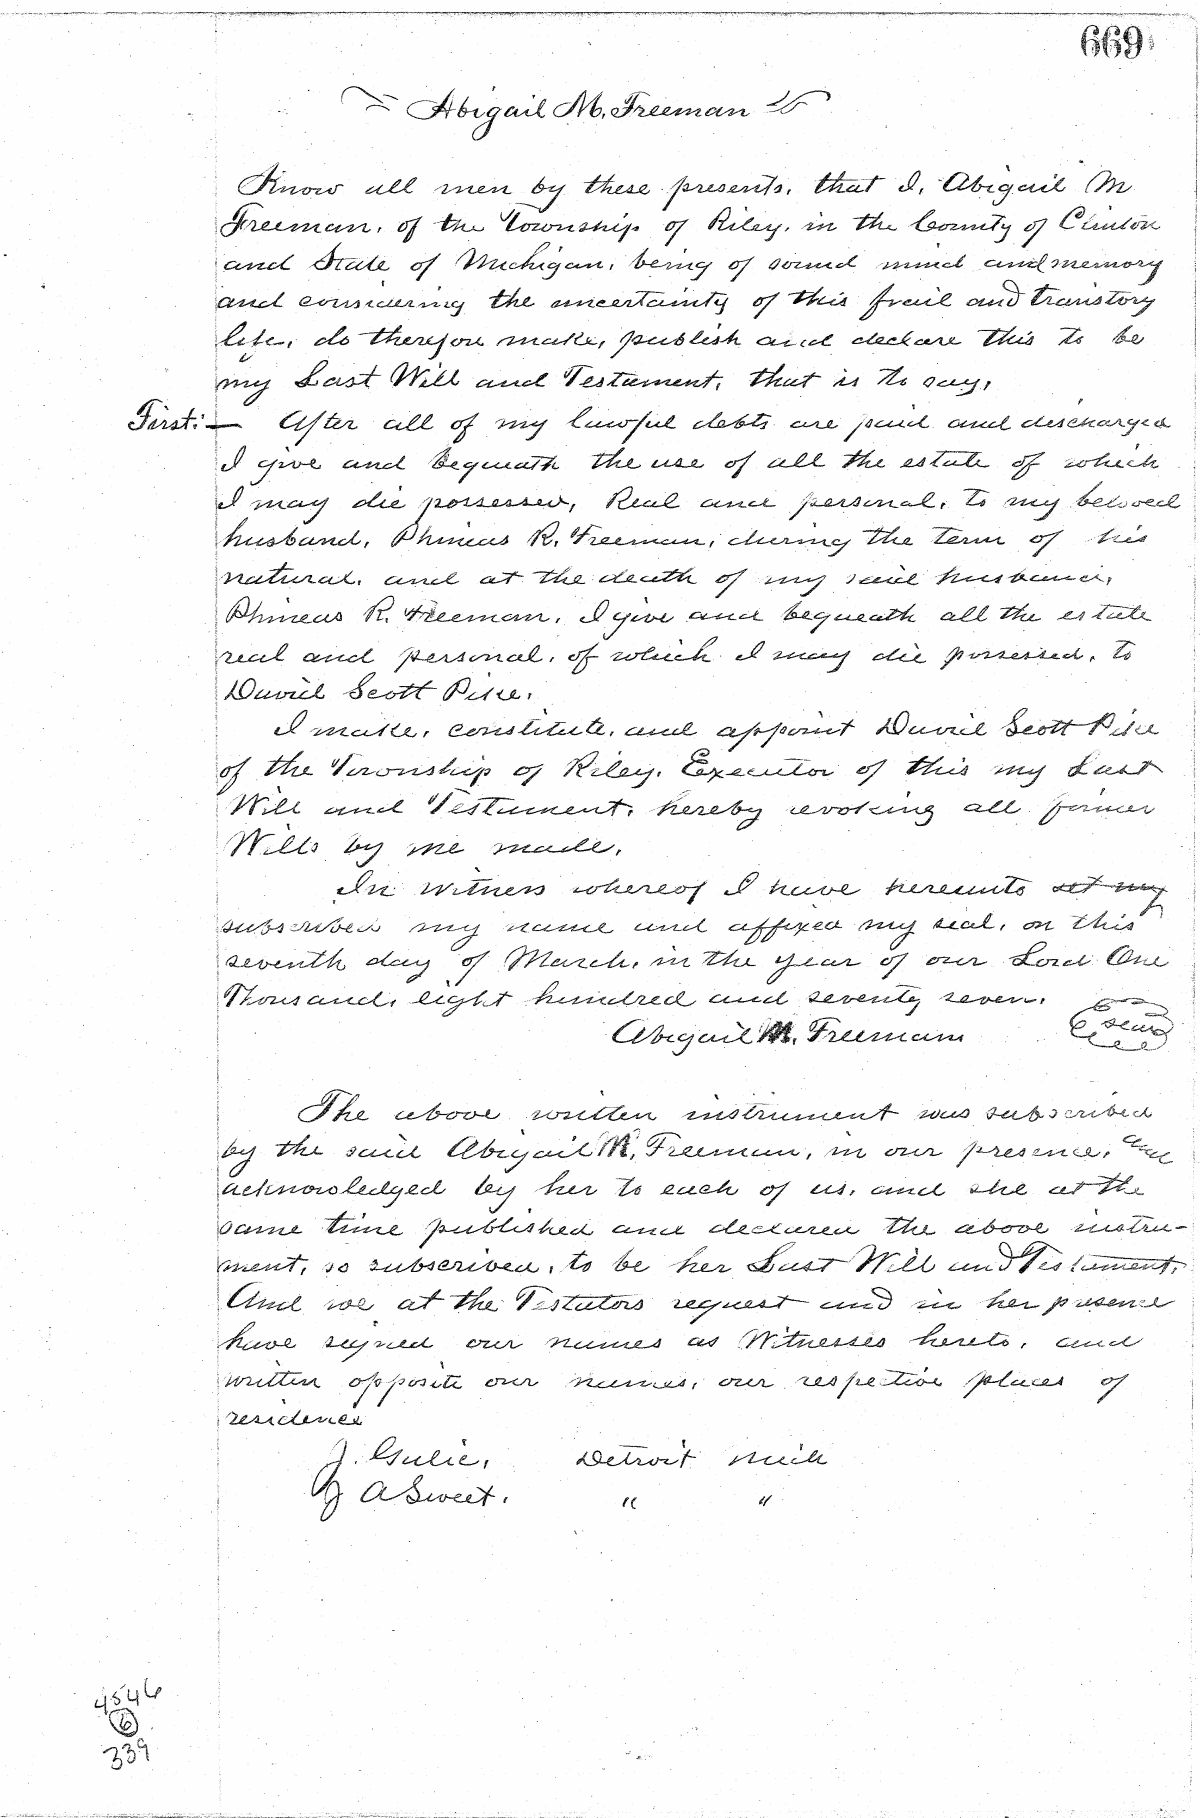 669
Abigail M. Freeman
Know all men by these presents, that I, Abigail M
Freeman, of the Township of Riley, in the County of Clinton
and State of Michigan, being of sound mind and memory
and considering the uncertainty of this frail and transtory
life, do therefore make, publish and declare this to be
my Last Will and Testament, that is to say,
First:— After all of my lawful debts are paid and discharged
I give and bequeath the use of all the estate of which
I may die possessed, Real and personal, to my beloved
husband, Phineas R. Freeman, during the term of his
natural, and at the death of my said husband,
Phineas R. Freeman, I give and bequeath all the estate
real and personal, of which I may die possessed, to
David Scott Pike.
I make, constitute, and appoint David Scott Pike
of the Township of Riley, Executor of this my Last
Will and Testament, hereby revoking all former
Wills by me made.
In witness whereof I have hereunto set my
subscribed my name and affixed my seal, on this
seventh day of March, in the year of our Lord One
Thousand, eight hundred and seventy seven.
Abigail M. Freeman seal
The above written instrument was subscribed
by the said Abigail M. Freeman, in our presence, and
acknowledged by her to each of us, and she at the
same time published and declared the above instru-
ment, so subscribed, to be her Last Will and Testament,
And we at the Testators request and in her presence
have signed our names as Witnesses hereto, and
written opposite our names, our respective places of
residence
J. Gulie, Detroit Mich
J A Sweet. " "
4546
6
339